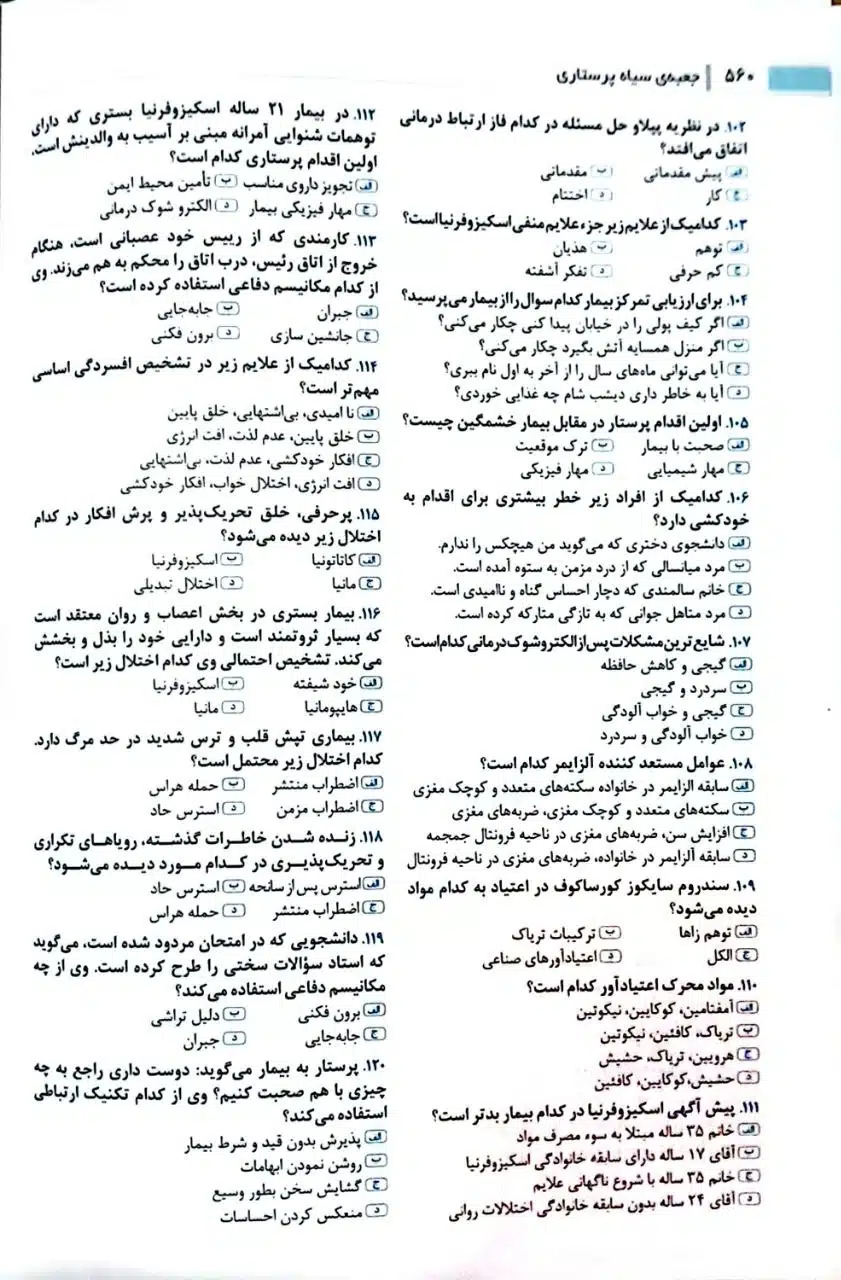 ۵۶۰ | جعبه‌ی سیاه پرستاری
۱۰۲. در نظریه پپلاو حل مسئله در کدام فاز ارتباط درمانی
اتفاق می‌افتد؟
الف) پیش مقدماتی ب) مقدماتی
ج) کار د) اختتام
۱۰۳. کدامیک از علایم زیر جزء علایم منفی اسکیزوفرنیا است؟
الف) توهم ب) هذیان
ج) کم حرفی د) تفکر آشفته
۱۰۴. برای ارزیابی تمرکز بیمار کدام سوال را از بیمار می‌پرسید؟
الف) اگر کیف پولی را در خیابان پیدا کنی چکار می‌کنی؟
ب) اگر منزل همسایه آتش بگیرد چکار می‌کنی؟
ج) آیا می‌توانی ماه‌های سال را از آخر به اول نام ببری؟
د) آیا به خاطر داری دیشب شام چه غذایی خوردی؟
۱۰۵. اولین اقدام پرستار در مقابل بیمار خشمگین چیست؟
الف) صحبت با بیمار ب) ترک موقعیت
ج) مهار شیمیایی د) مهار فیزیکی
۱۰۶. کدامیک از افراد زیر خطر بیشتری برای اقدام به
خودکشی دارد؟
الف) دانشجوی دختری که می‌گوید من هیچکس را ندارم.
ب) مرد میانسالی که از درد مزمن به ستوه آمده است.
ج) خانم سالمندی که دچار احساس گناه و ناامیدی است.
د) مرد متاهل جوانی که به تازگی متارکه کرده است.
۱۰۷. شایع‌ترین مشکلات پس از الکتروشوک درمانی کدام است؟
الف) گیجی و کاهش حافظه
ب) سردرد و گیجی
ج) گیجی و خواب آلودگی
د) خواب آلودگی و سردرد
۱۰۸. عوامل مستعد کننده آلزایمر کدام است؟
الف) سابقه الزایمر در خانواده سکته‌های متعدد و کوچک مغزی
ب) سکته‌های متعدد و کوچک مغزی، ضربه‌های مغزی
ج) افزایش سن، ضربه‌های مغزی در ناحیه فرونتال جمجمه
د) سابقه آلزایمر در خانواده، ضربه‌های مغزی در ناحیه فرونتال
۱۰۹. سندروم سایکوز کورساکوف در اعتیاد به کدام مواد
دیده می‌شود؟
الف) توهم زاها ب) ترکیبات تریاک
ج) الکل د) اعتیادآورهای صناعی
۱۱۰. مواد محرک اعتیادآور کدام است؟
الف) آمفتامین، کوکایین، نیکوتین
ب) تریاک، کافئین، نیکوتین
ج) هرویین، تریاک، حشیش
د) حشیش،کوکایین، کافئین
۱۱۱. پیش آگهی اسکیزوفرنیا در کدام بیمار بدتر است؟
الف) خانم ۳۵ ساله مبتلا به سوء مصرف مواد
ب) آقای ۱۷ ساله دارای سابقه خانوادگی اسکیزوفرنیا
ج) خانم ۳۵ ساله با شروع ناگهانی علایم
د) آقای ۲۴ ساله بدون سابقه خانوادگی اختلالات روانی
۱۱۲. در بیمار ۲۱ ساله اسکیزوفرنیا بستری که دارای
توهمات شنوایی آمرانه مبنی بر آسیب به والدینش است،
اولین اقدام پرستاری کدام است؟
الف) تجویز داروی مناسب ب) تأمین محیط ایمن
ج) مهار فیزیکی بیمار د) الکترو شوک درمانی
۱۱۳. کارمندی که از رییس خود عصبانی است، هنگام
خروج از اتاق رئیس، درب اتاق را محکم به هم می‌زند. وی
از کدام مکانیسم دفاعی استفاده کرده است؟
الف) جبران ب) جابه‌جایی
ج) جانشین سازی د) برون فکنی
۱۱۴. کدامیک از علایم زیر در تشخیص افسردگی اساسی
مهم‌تر است؟
الف) نا امیدی، بی‌اشتهایی، خلق پایین
ب) خلق پایین، عدم لذت، افت انرژی
ج) افکار خودکشی، عدم لذت، بی‌اشتهایی
د) افت انرژی، اختلال خواب، افکار خودکشی
۱۱۵. پرحرفی، خلق تحریک‌پذیر و پرش افکار در کدام
اختلال زیر دیده می‌شود؟
الف) کاتاتونیا ب) اسکیزوفرنیا
ج) مانیا د) اختلال تبدیلی
۱۱۶. بیمار بستری در بخش اعصاب و روان معتقد است
که بسیار ثروتمند است و دارایی خود را بذل و بخشش
می‌کند. تشخیص احتمالی وی کدام اختلال زیر است؟
الف) خود شیفته ب) اسکیزوفرنیا
ج) هایپومانیا د) مانیا
۱۱۷. بیماری تپش قلب و ترس شدید در حد مرگ دارد.
کدام اختلال زیر محتمل است؟
الف) اضطراب منتشر ب) حمله هراس
ج) اضطراب مزمن د) استرس حاد
۱۱۸. زنده شدن خاطرات گذشته، رویاهای تکراری
و تحریک‌پذیری در کدام مورد دیده می‌شود؟
الف) استرس پس از سانحه ب) استرس حاد
ج) اضطراب منتشر د) حمله هراس
۱۱۹. دانشجویی که در امتحان مردود شده است، می‌گوید
که استاد سؤالات سختی را طرح کرده است. وی از چه
مکانیسم دفاعی استفاده می‌کند؟
الف) برون فکنی ب) دلیل تراشی
ج) جابه‌جایی د) جبران
۱۲۰. پرستار به بیمار می‌گوید: دوست داری راجع به چه
چیزی با هم صحبت کنیم؟ وی از کدام تکنیک ارتباطی
استفاده می‌کند؟
الف) پذیرش بدون قید و شرط بیمار
ب) روشن نمودن ابهامات
ج) گشایش سخن بطور وسیع
د) منعکس کردن احساسات